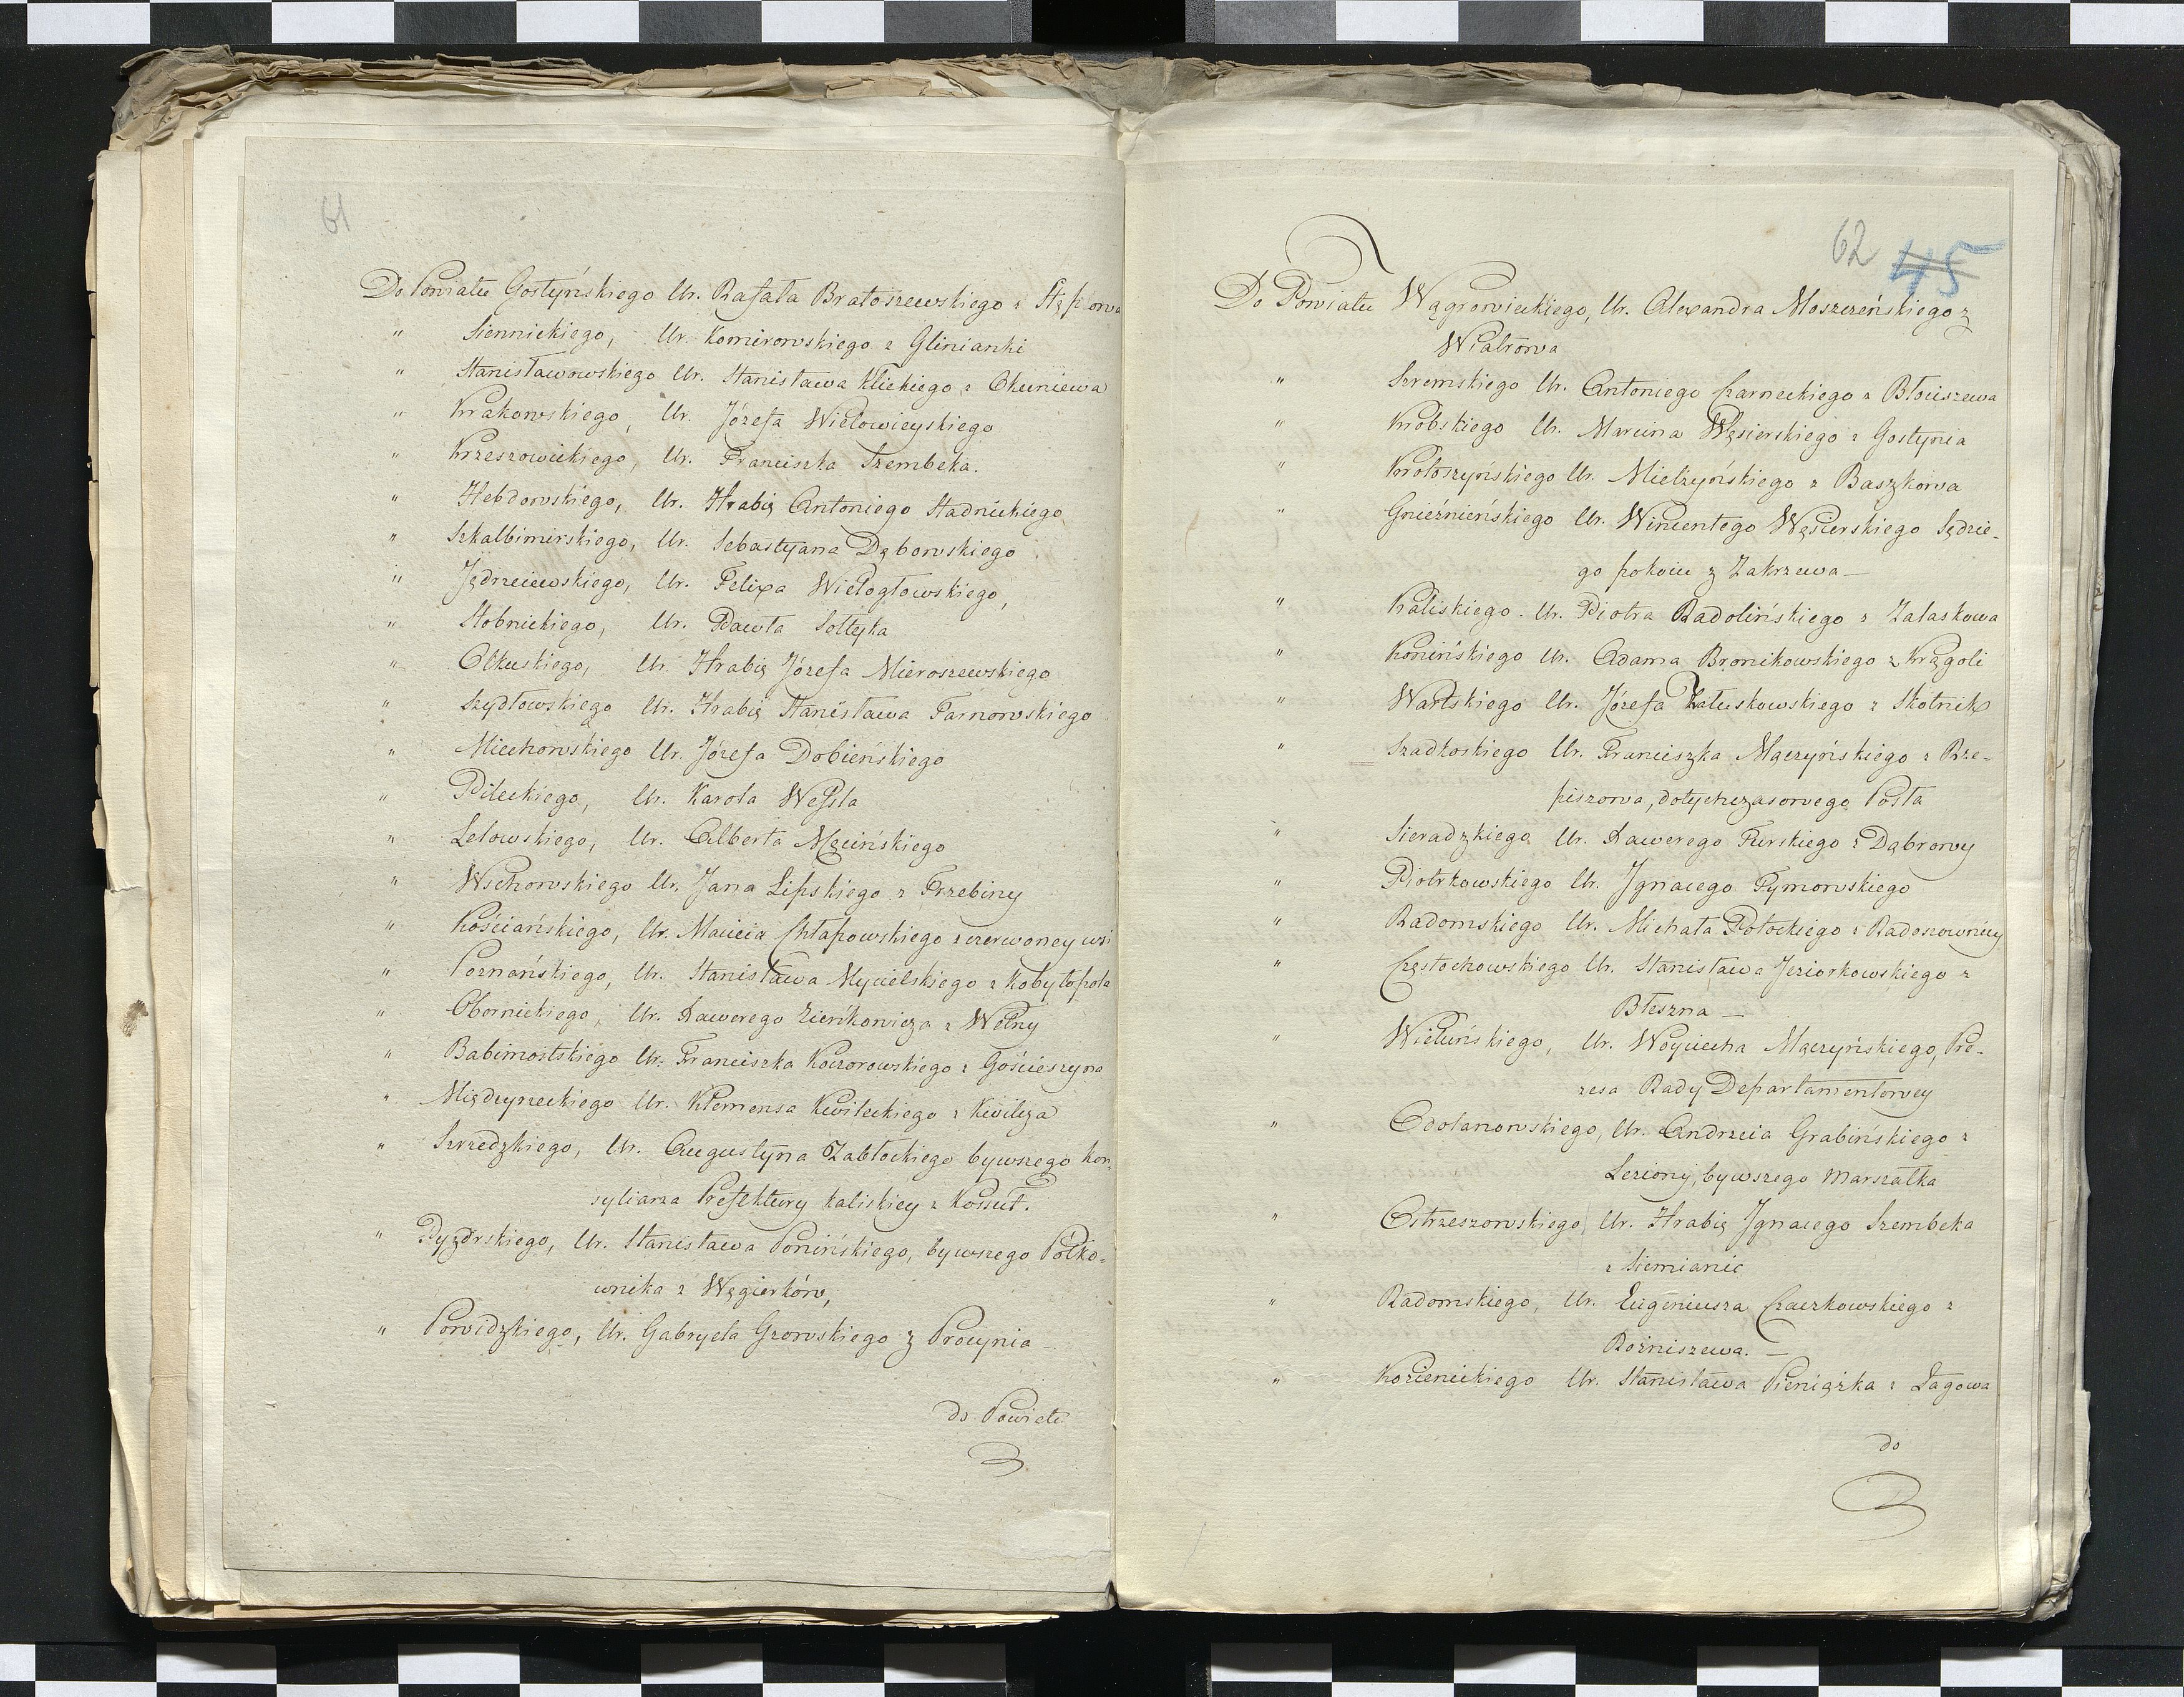 61
Do Powiatu Gostyńskiego Ur. Rafała Bratoszewskiego z Stępowa
" Siennickiego, Ur. Komirowskiego z Glinianki
" Stanisławowskiego Ur. Stanisława Klickiego z Okuniewa
" Krakowskiego, Ur. Józefa Wielowieyskiego
" Krzeszowickiego, Ur. Franciszka Szembeka.
" Hebdowskiego, Ur. Hrabię Antoniego Stadnickiego
" Szkalbimirskiego, Ur. Sebastyana Dębowskiego
" Jędrzeiewskiego, Ur. Felixa Wielogłowskiego,
" Stobnickiego, Ur. Pawła Sołtyka
" Olkuskiego, Ur. Hrabię Józefa Mieroszewskiego
" Szydłowskiego Ur. Hrabię Stanisława Tarnowskiego
" Miechowskiego Ur. Józefa Dobieńskiego
" Pileckiego, Ur. Karola Wessla
" Lelowskiego, Ur. Alberta Męcińskiego
" Wschowskiego Ur. Jana Lipskiego z Trzebiny
" Kościańskiego, Ur. Macieia Chłapowskiego z czerwoney wsi
" Poznańskiego, Ur. Stanisława Mycielskiego z Kobylopola
" Obornickiego, Ur. Xawerego Zieńkowicza z Wełny
" Babimostskiego Ur. Franciszka Koczorowskiego z Gościeszyna
" Międzyrzeckiego Ur. Klemensa Kwileckiego z Kwilcza
" Szredzkiego, Ur. Augustyna Zabłockiego bywszego Kon-
syliarza Prefektury kaliskiey z Kossut.
" Pyzdrskiego, Ur. Stanisława Ponińskiego, bywszego Półko-
wnika z Węgierków,
" Powidzkiego, Ur. Gabryela Gzowskiego z Procynia
do Powiatu
62
45
Do Powiatu Wągrowieckiego, Ur. Alexandra Moszczeńskiego z
Wiatrowa
" Szremskiego Ur. Antoniego Czarneckiego z Błociszewa
" Krobskiego Ur. Marcina Węsierskiego z Gostynia
" Krotoszyńskiego Ur. Mielżyńskiego z Baszkowa
" Gnieźnieńskiego Ur. Wincentego Węsierskiego Sędzie-
go pokoiu z Zakrzewa
" Kaliskiego Ur. Piotra Radolińskiego z Zalaskowa
" Konińskiego Ur. Adama Bronikowskiego z Krągoli
" Wartskiego Ur. Józefa Załuskowskiego z Skotnik
" Szadkoskiego Ur. Franciszka Mączyńskiego z Rze-
piszowa, dotychczasowego Posła
" Sieradzkiego Ur. Xawerego Turskiego z Dąbrowy
" Piotrkowskiego Ur. Jgnacego Tymowskiego
" Radomskiego Ur. Michała Potockiego z Radoszownicy
" Częstochowskiego Ur. Stanisława Jeziorkowskiego z
Błeszna
" Wieluńskiego, Ur. Woyciecha Mączyńskiego, Pre-
zesa Rady Departamentowey
" Odolanowskiego, Ur. Andrzeia Grabińskiego z
Leziony, bywszego Marszałka
" Ostrzeszowskiego Ur. Hrabię Jgnacego Szembeka
z Siemianic
" Radomskiego, Ur. Eugeniusza Czaczkowskiego z
Rożniszewa.
" Kozienickiego Ur. Stanisława Pieniążka z Łagowa
do